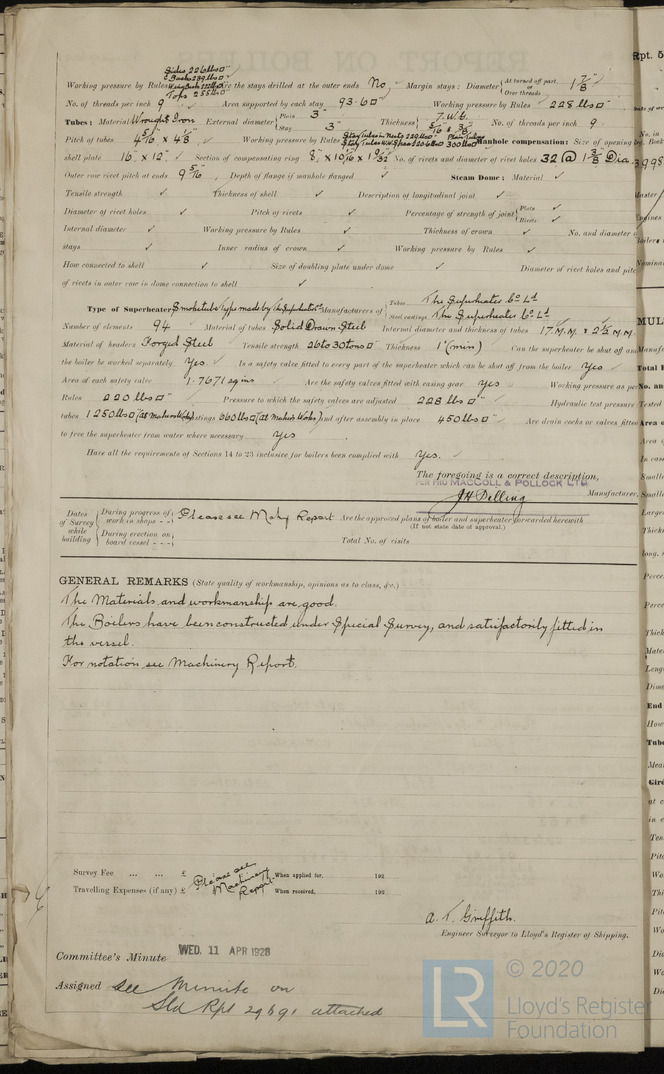 Sides 226 lbs □"
Backs 239 lbs □"
Tops 255 lbs □"
Working pressure by Rules Are the stays drilled at the outer ends No. Margin stays: Diameter { At turned off part. or Over threads 1 7/8"
No. of threads per inch 9 Area supported by each stay 93.6 □" Working pressure by Rules 228 lbs □"
Tubes: Material Wrought Iron External diameter { Plain 3" Stay 3" Thickness { 7 W.G. 5/16" & 3/8" No. of threads per inch 9
Pitch of tubes 4 5/16" x 4 1/8" Working pressure by Rules Plain Tubes 300 lbs □" Manhole compensation: Size of opening
shell plate 16" x 12" Section of compensating ring 8" x 10 1/16 x 1 9/32" No. of rivets and diameter of rivet holes 32 @ 1 3/8" Dia.
Outer row rivet pitch at ends 9 5/16" Depth of flange if manhole flanged ✓ Steam Dome: Material ✓
Tensile strength ✓ Thickness of shell ✓ Description of longitudinal joint ✓
Diameter of rivet holes ✓ Pitch of rivets ✓ Percentage of strength of joint { Plate ✓ Rivets ✓
Internal diameter ✓ Working pressure by Rules ✓ Thickness of crown ✓ No. and diameter
stays ✓ Inner radius of crown ✓ Working pressure by Rules ✓
How connected to shell ✓ Size of doubling plate under dome ✓ Diameter of rivet holes and pitch
of rivets in outer row in dome connection to shell ✓
Type of Superheater Smoketube Type made by The Superheater Co. Manufacturers of { Tubes The Superheater Co Ld Steel castings The Superheater Co Ld
Number of elements 94 Material of tubes Solid Drawn Steel Internal diameter and thickness of tubes 17 M.M. x 2½ M.M.
Material of headers Forged Steel Tensile strength 26 to 30 tons □" Thickness 1" (min) Can the superheater be shut off and
the boiler be worked separately Yes. Is a safety valve fitted to every part of the superheater which can be shut off from the boiler Yes
Area of each safety valve 1.7671 sq ins Are the safety valves fitted with easing gear Yes Working pressure as per
Rules 220 lbs □" Pressure to which the safety valves are adjusted 228 lbs □" Hydraulic test pressure:
tubes 1250 lbs □" (at Makers Works) castings 660 lbs □" (at Makers Works) and after assembly in place 450 lbs □" Are drain cocks or valves fitted
to free the superheater from water where necessary Yes
Have all the requirements of Sections 14 to 23 inclusive for boilers been complied with Yes.
The foregoing is a correct description,
PER PRO MACCOLL & POLLOCK LTD.
J H Delling Manufacturer.
Dates of Survey while building { During progress of work in shops - - } Please see Mchy Report Are the approved plans of boiler and superheater forwarded herewith
(If not state date of approval.)
{ During erection on board vessel - - - } Total No. of visits
GENERAL REMARKS (State quality of workmanship, opinions as to class, &c.)
The Materials and workmanship are good.
The Boilers have been constructed under Special Survey, and satisfactorily fitted in
the vessel.
For notation see Machinery Report.
Survey Fee ... ... £ When applied for, 192
Please see Machinery Report.
Travelling Expenses (if any) £ When received, 192
A. T. Griffith.
Engineer Surveyor to Lloyd's Register of Shipping.
Committee's Minute WED. 11 APR 1928
Assigned See Minute on
Sld Rpt 29691 attached
© 2020
Lloyd's Register
Foundation